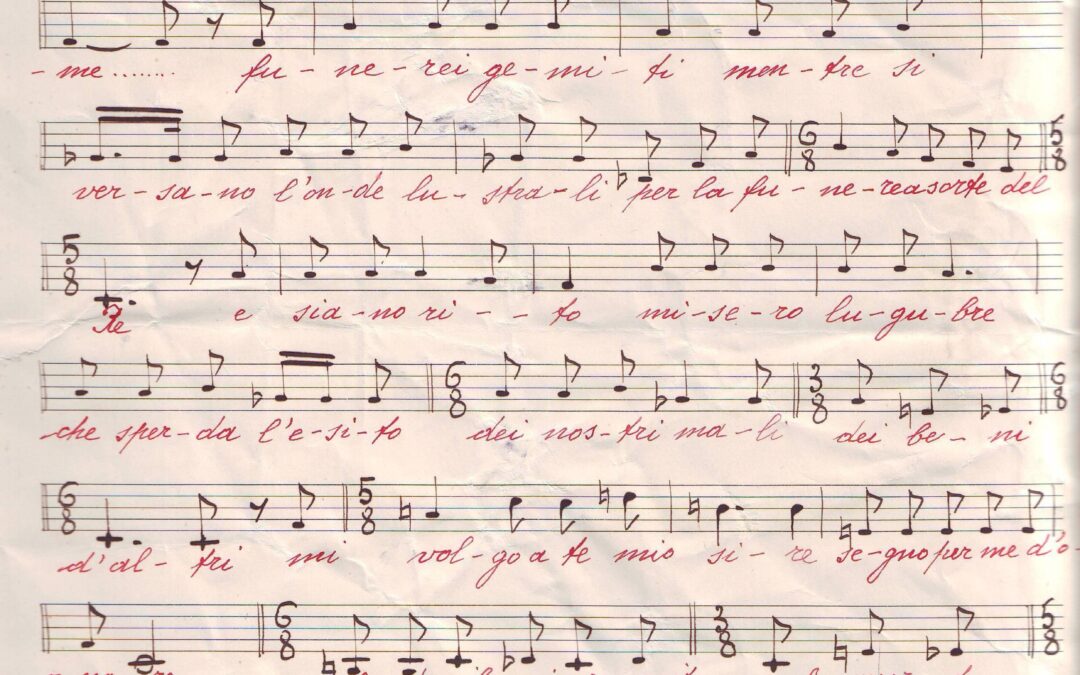 - me ........ fu - ne - rei ge - mi - ti men - tre si
6 8 5 8
ver - sa - no l'on - de lu - stra - li per la fu - ne - rea sorte del
5 8
Re e sia - no ri - - to mi - se - ro lu - gu - bre
6 8 3 8 6 8
che sper - da l'e - si - to dei nos - tri ma - li dei be - ni
6 8 5 8
d'al - tri mi vol - go a te mio si - re se - gno per me d'o -
6 8 3 8 5 8